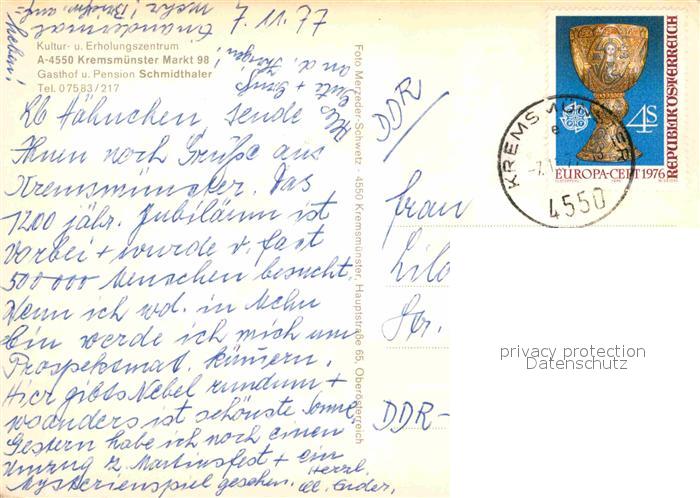 7.11.77
Kultur- u. Erholungszentrum
A-4550 Kremsmünster Markt 98
Gasthof u. Pension Schmidthaler
Tel. 07583/217
Lb Hähnchen sende
Ihnen noch Grüße aus
Kremsmünster. Das
1200 jähr. Jubiläum ist
vorbei + wurde v. fast
500 000 Menschen besucht.
Wenn ich wd. in
bin werde ich mich um
Prospektmat. kümern.
Hier gibts Nebel rundum +
woanders ist schönste Sonne.
Gestern habe ich noch einen
Umzug z. Martinsfest + ein
Mysterienspiel gesehen.
Herzl.
Foto Merzeder-Schwetz - 4550 Kremsmünster, Hauptstraße 65, Oberösterreich
DDR
Frau
Lilo
Str.
DDR-
REPUBLIK ÖSTERREICH
4S
EUROPA-CEPT 1976
KREMSMÜNSTER
4550
privacy protection
Datenschutz